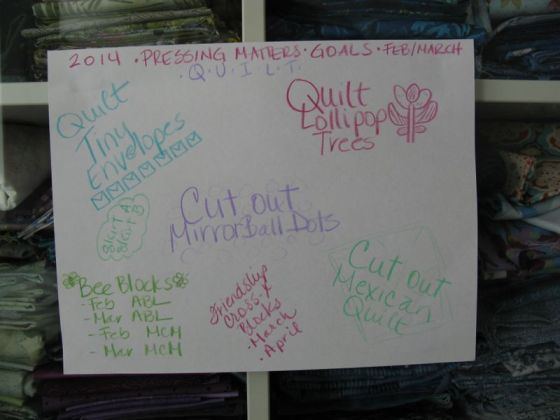 2014 • PRESSING MATTERS • GOALS • FEB/MARCH
• Q • U • I • L • T •
Quilt
Tiny
Envelopes
Quilt
Lollipop
Trees
Skirt A
Skirt B
Cut out
MirrorBall Dots
Bee Blocks
- Feb ABL
- Mar ABL
- Feb MCM
- Mar MCM
Friendship
Cross-X
Blocks
• March
• April
Cut out
Mexican
Quilt